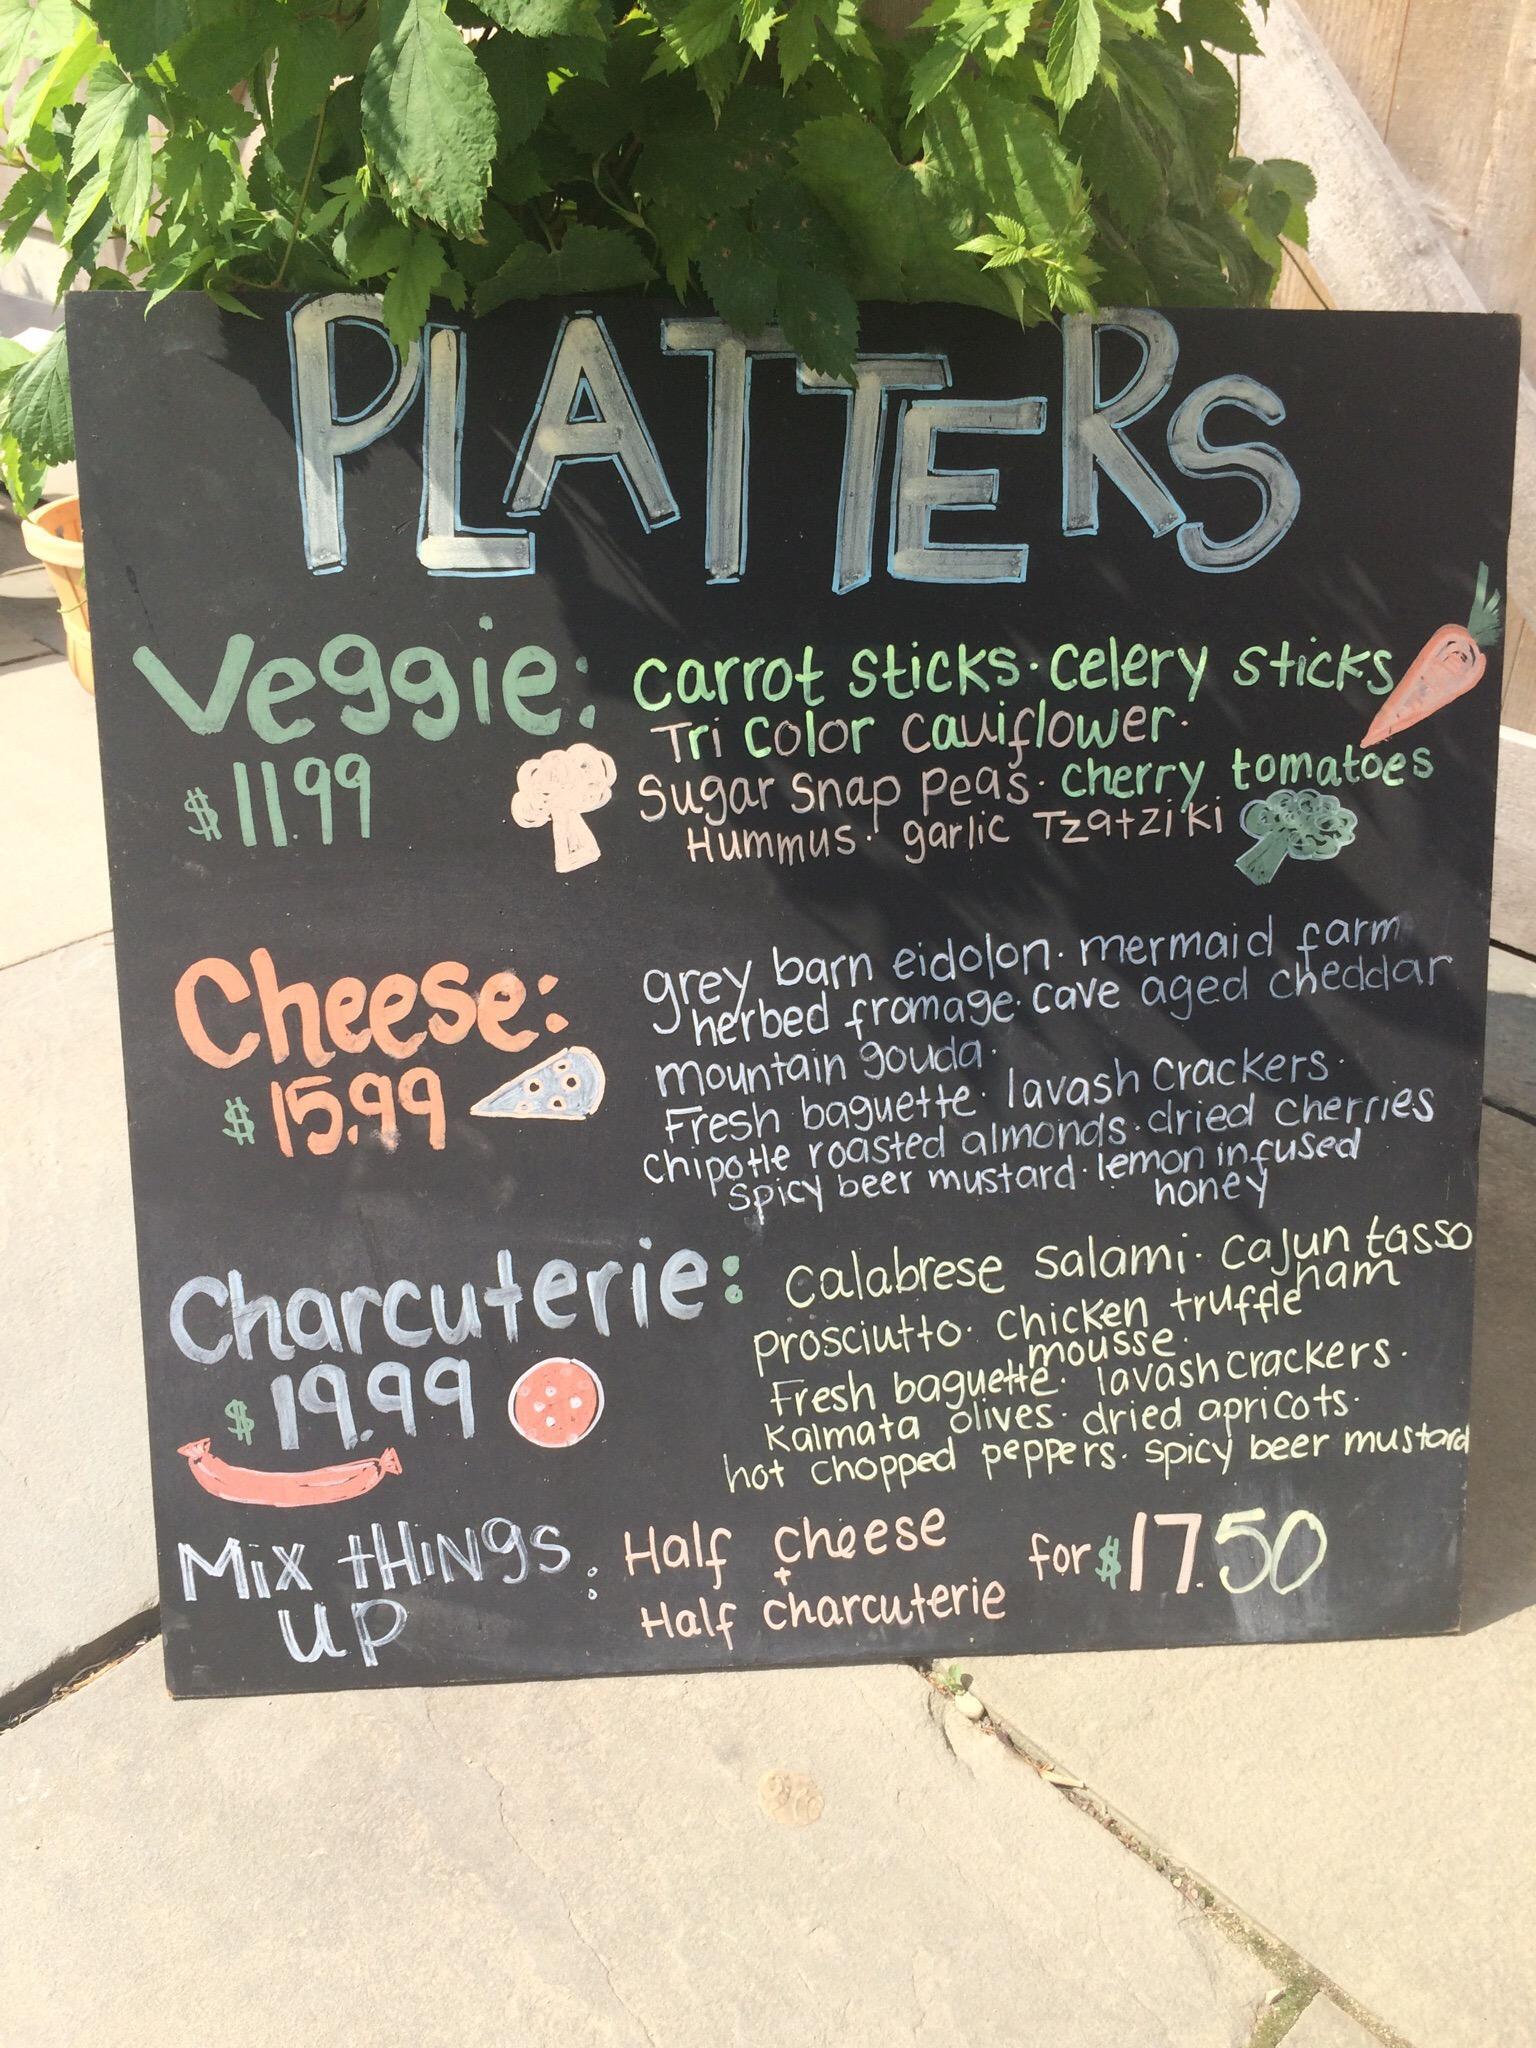 PLATTERS
Veggie:
$11.99
carrot sticks · celery sticks
Tri color cauiflower ·
Sugar snap peas · cherry tomatoes
Hummus · garlic Tzatziki
Cheese:
$15.99
grey barn eidolon · mermaid farm
herbed fromage · cave aged cheddar
mountain gouda ·
Fresh baguette · lavash crackers ·
chipotle roasted almonds · dried cherries
spicy beer mustard · lemon infused
honey
Charcuterie:
$19.99
Calabrese salami · Cajun tasso
ham
prosciutto · chicken truffle
mousse ·
Fresh baguette · lavash crackers ·
Kalmata olives · dried apricots ·
hot chopped peppers · spicy beer mustard
Mix tHiNgs
up :
Half cheese
+
Half charcuterie
for $17.50